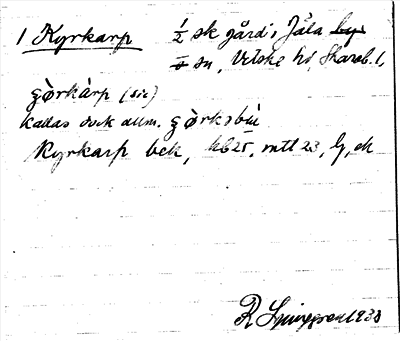 1 Kyrkarp ½ sk gård i Jäla by
o sn, Vilske hd, Skarab. l,
gòrkàrp (sic)
kallas dock allm. gòrksbù
Kyrkarp bek, hb25, mtl 23, G, ek
R Ljunggren 1930